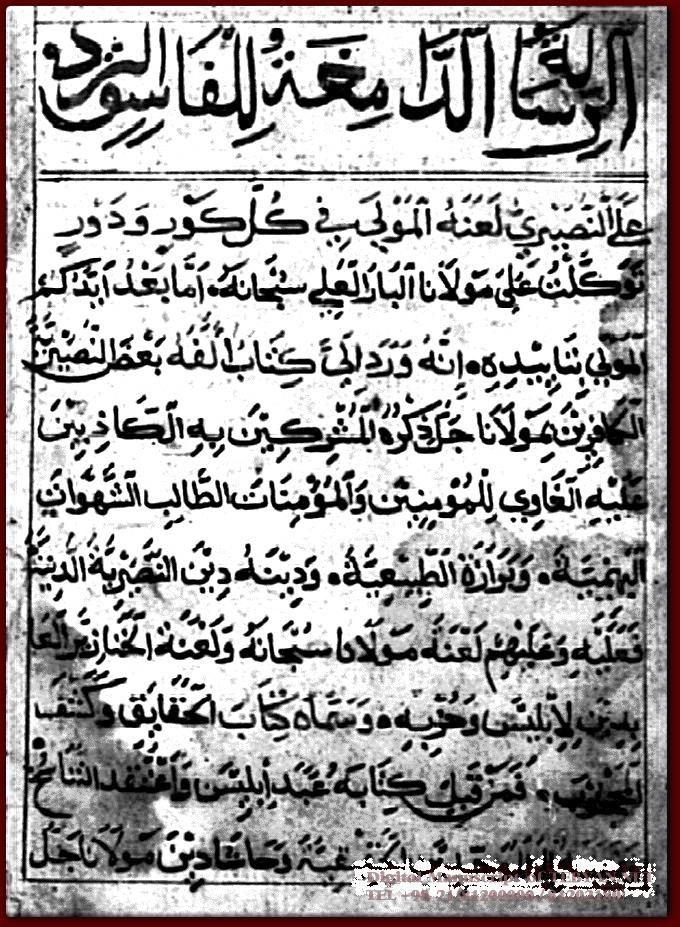 الرسالة الدامغة للفاسق الرد
على النصيري لعنه المولى في كل كور ودور
توكلت على مولانا البار العلي سبحانه، اما بعد ايدكم
المولى بتاييده، انه ورد الي كتاب الفه بعض النصيرية
الكافرين بمولانا جل ذكره المشركين به الكاذبين
عليه الغاوي للمومنين والمومنات الطالب الشهوات
البهيمية، ودينه دين النصيرية الدنية
فعليه وعليهم لعنة مولانا سبحانه ولعنة الخنازير العا
بدين لابليس وحزبه، وسماه كتاب الحقايق وكشف
المحجوب، فمن قبل كتابه عبد ابليس واعتقد التناسخ
وحاشا دين مولانا جل
Digital
TEL +98 21